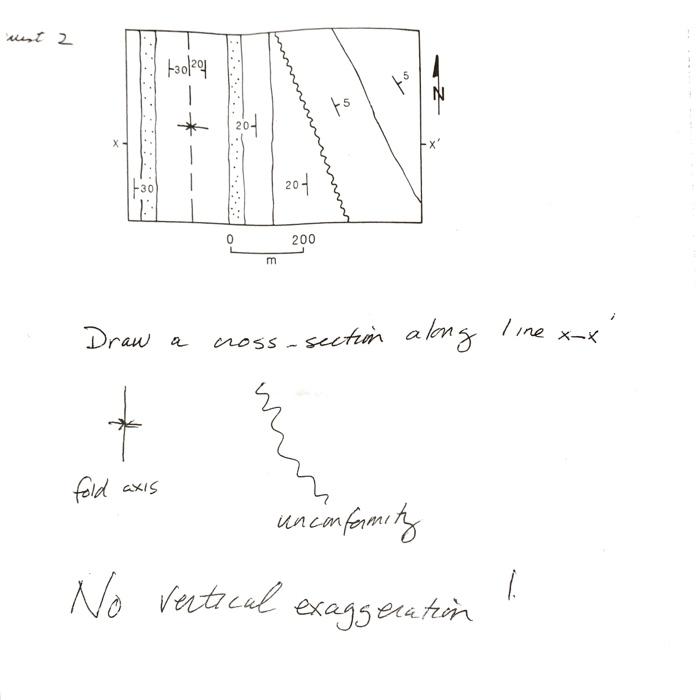 2
30 20 5
N
20 5
x x'
30 20
0 200
m
Draw a cross-section along line x-x'
fold axis
unconformity
No vertical exaggeration !